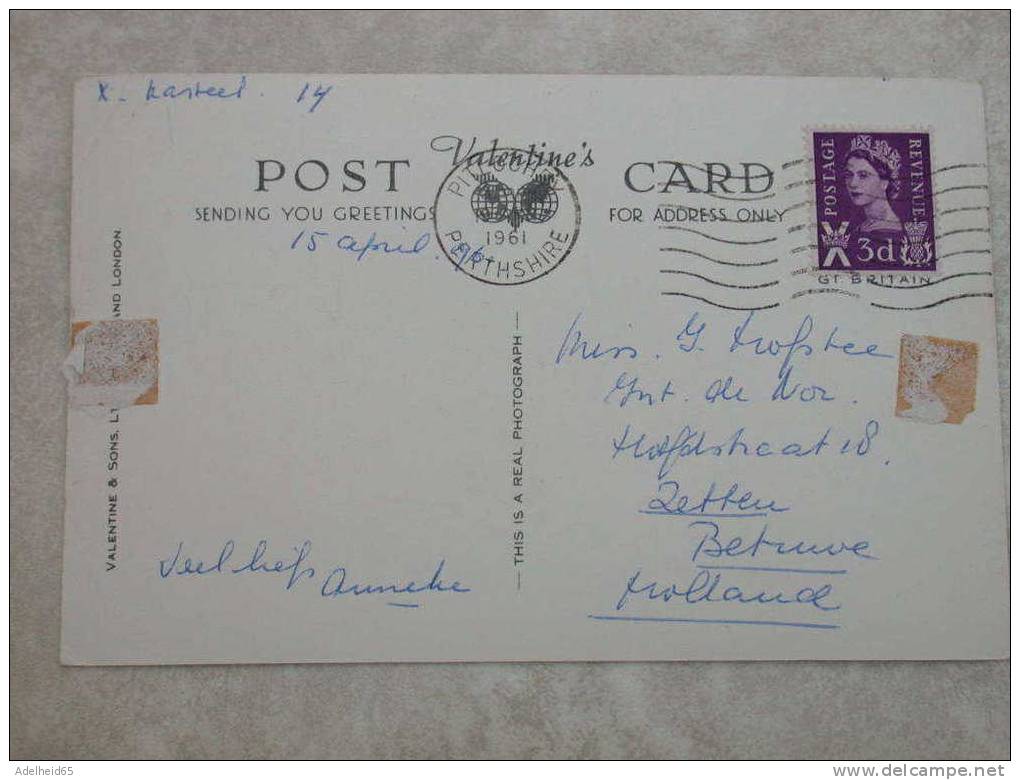 X - Kasteel. 14
Valentine's
POST CARD
SENDING YOU GREETINGS
FOR ADDRESS ONLY
15 april. 961
PITLOCHRY
1961
PERTHSHIRE
POSTAGE
REVENUE
3d
GT. BRITAIN
VALENTINE & SONS, LT
AND LONDON
— THIS IS A REAL PHOTOGRAPH —
Miss. G. Hofstee
Int. de Vor.
Hoofdstraat 18.
Zetten
Betuwe
Holland
Veel liefs
Anneke
Adelheid65
delcampe.net